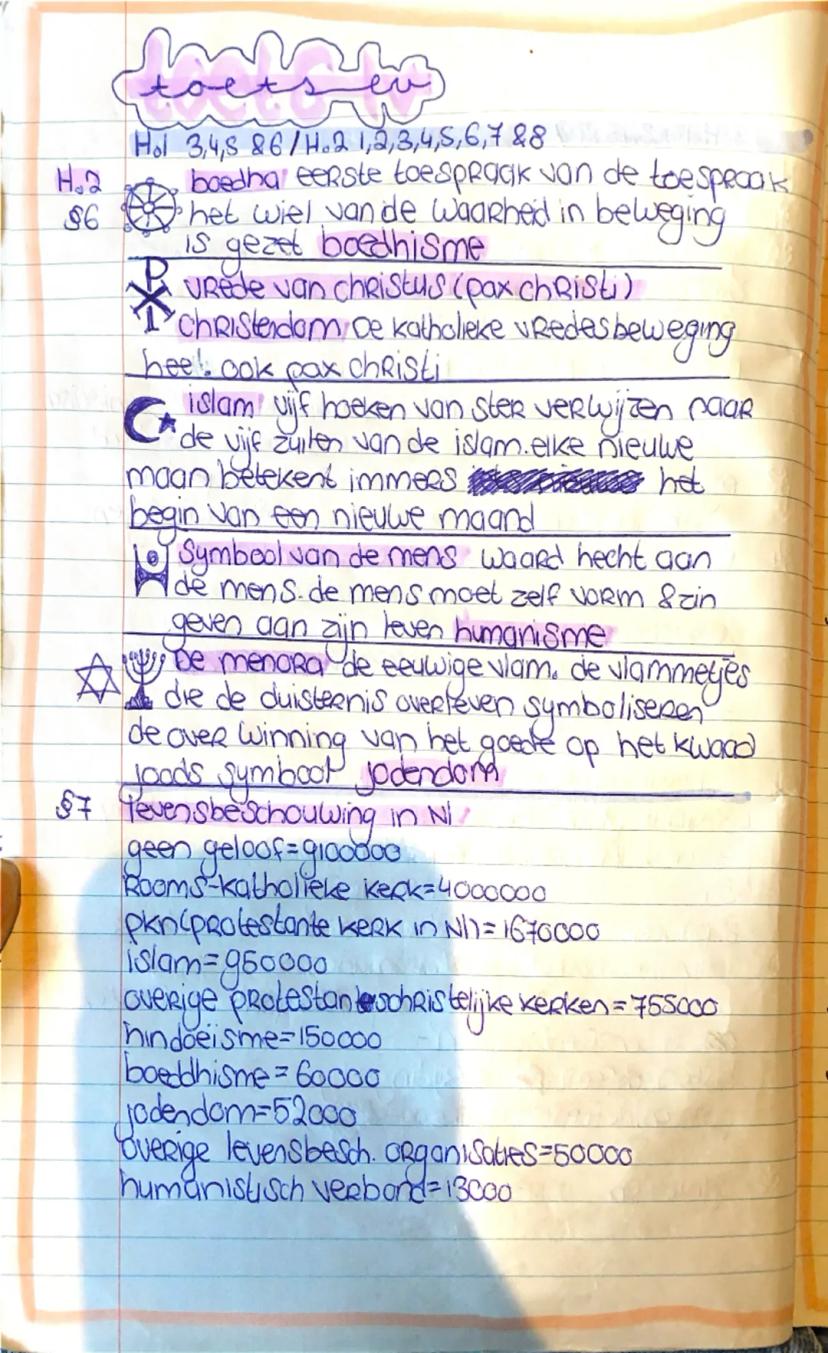 toets lv
H.1 3,4,5 &6/H.2 1,2,3,4,5,6,7 &8
H.2 boedha eerste toespraak van de toespraak
§6 het wiel van de waarheid in beweging
is gezet boedhisme
vrede van christus (pax christi)
christendom De katholieke vredesbeweging
heet ook pax christi
islam vijf hoeken van ster verwijzen naar
de vijf zuilen van de islam. elke nieuwe
maan betekent immers het
begin van een nieuwe maand
Symbool van de mens waard hecht aan
de mens. de mens moet zelf vorm & zin
geven aan zijn leven humanisme
De menora de eeuwige vlam. de vlammetjes
die de duisternis overleven symboliseren
de over winning van het goede op het kwaad
joods symbool jodendom
§7 levensbeschouwing in Nl
geen geloof=9100000
Rooms-katholieke kerk=4000000
pkn(protestante kerk in Nl)=1670000
islam=950000
overige protestantschristelijke kerken=755000
hindoeisme=150000
boeddhisme=60000
jodendom=52000
overige levensbesch. organisaties=50000
humanistisch verbond=13000